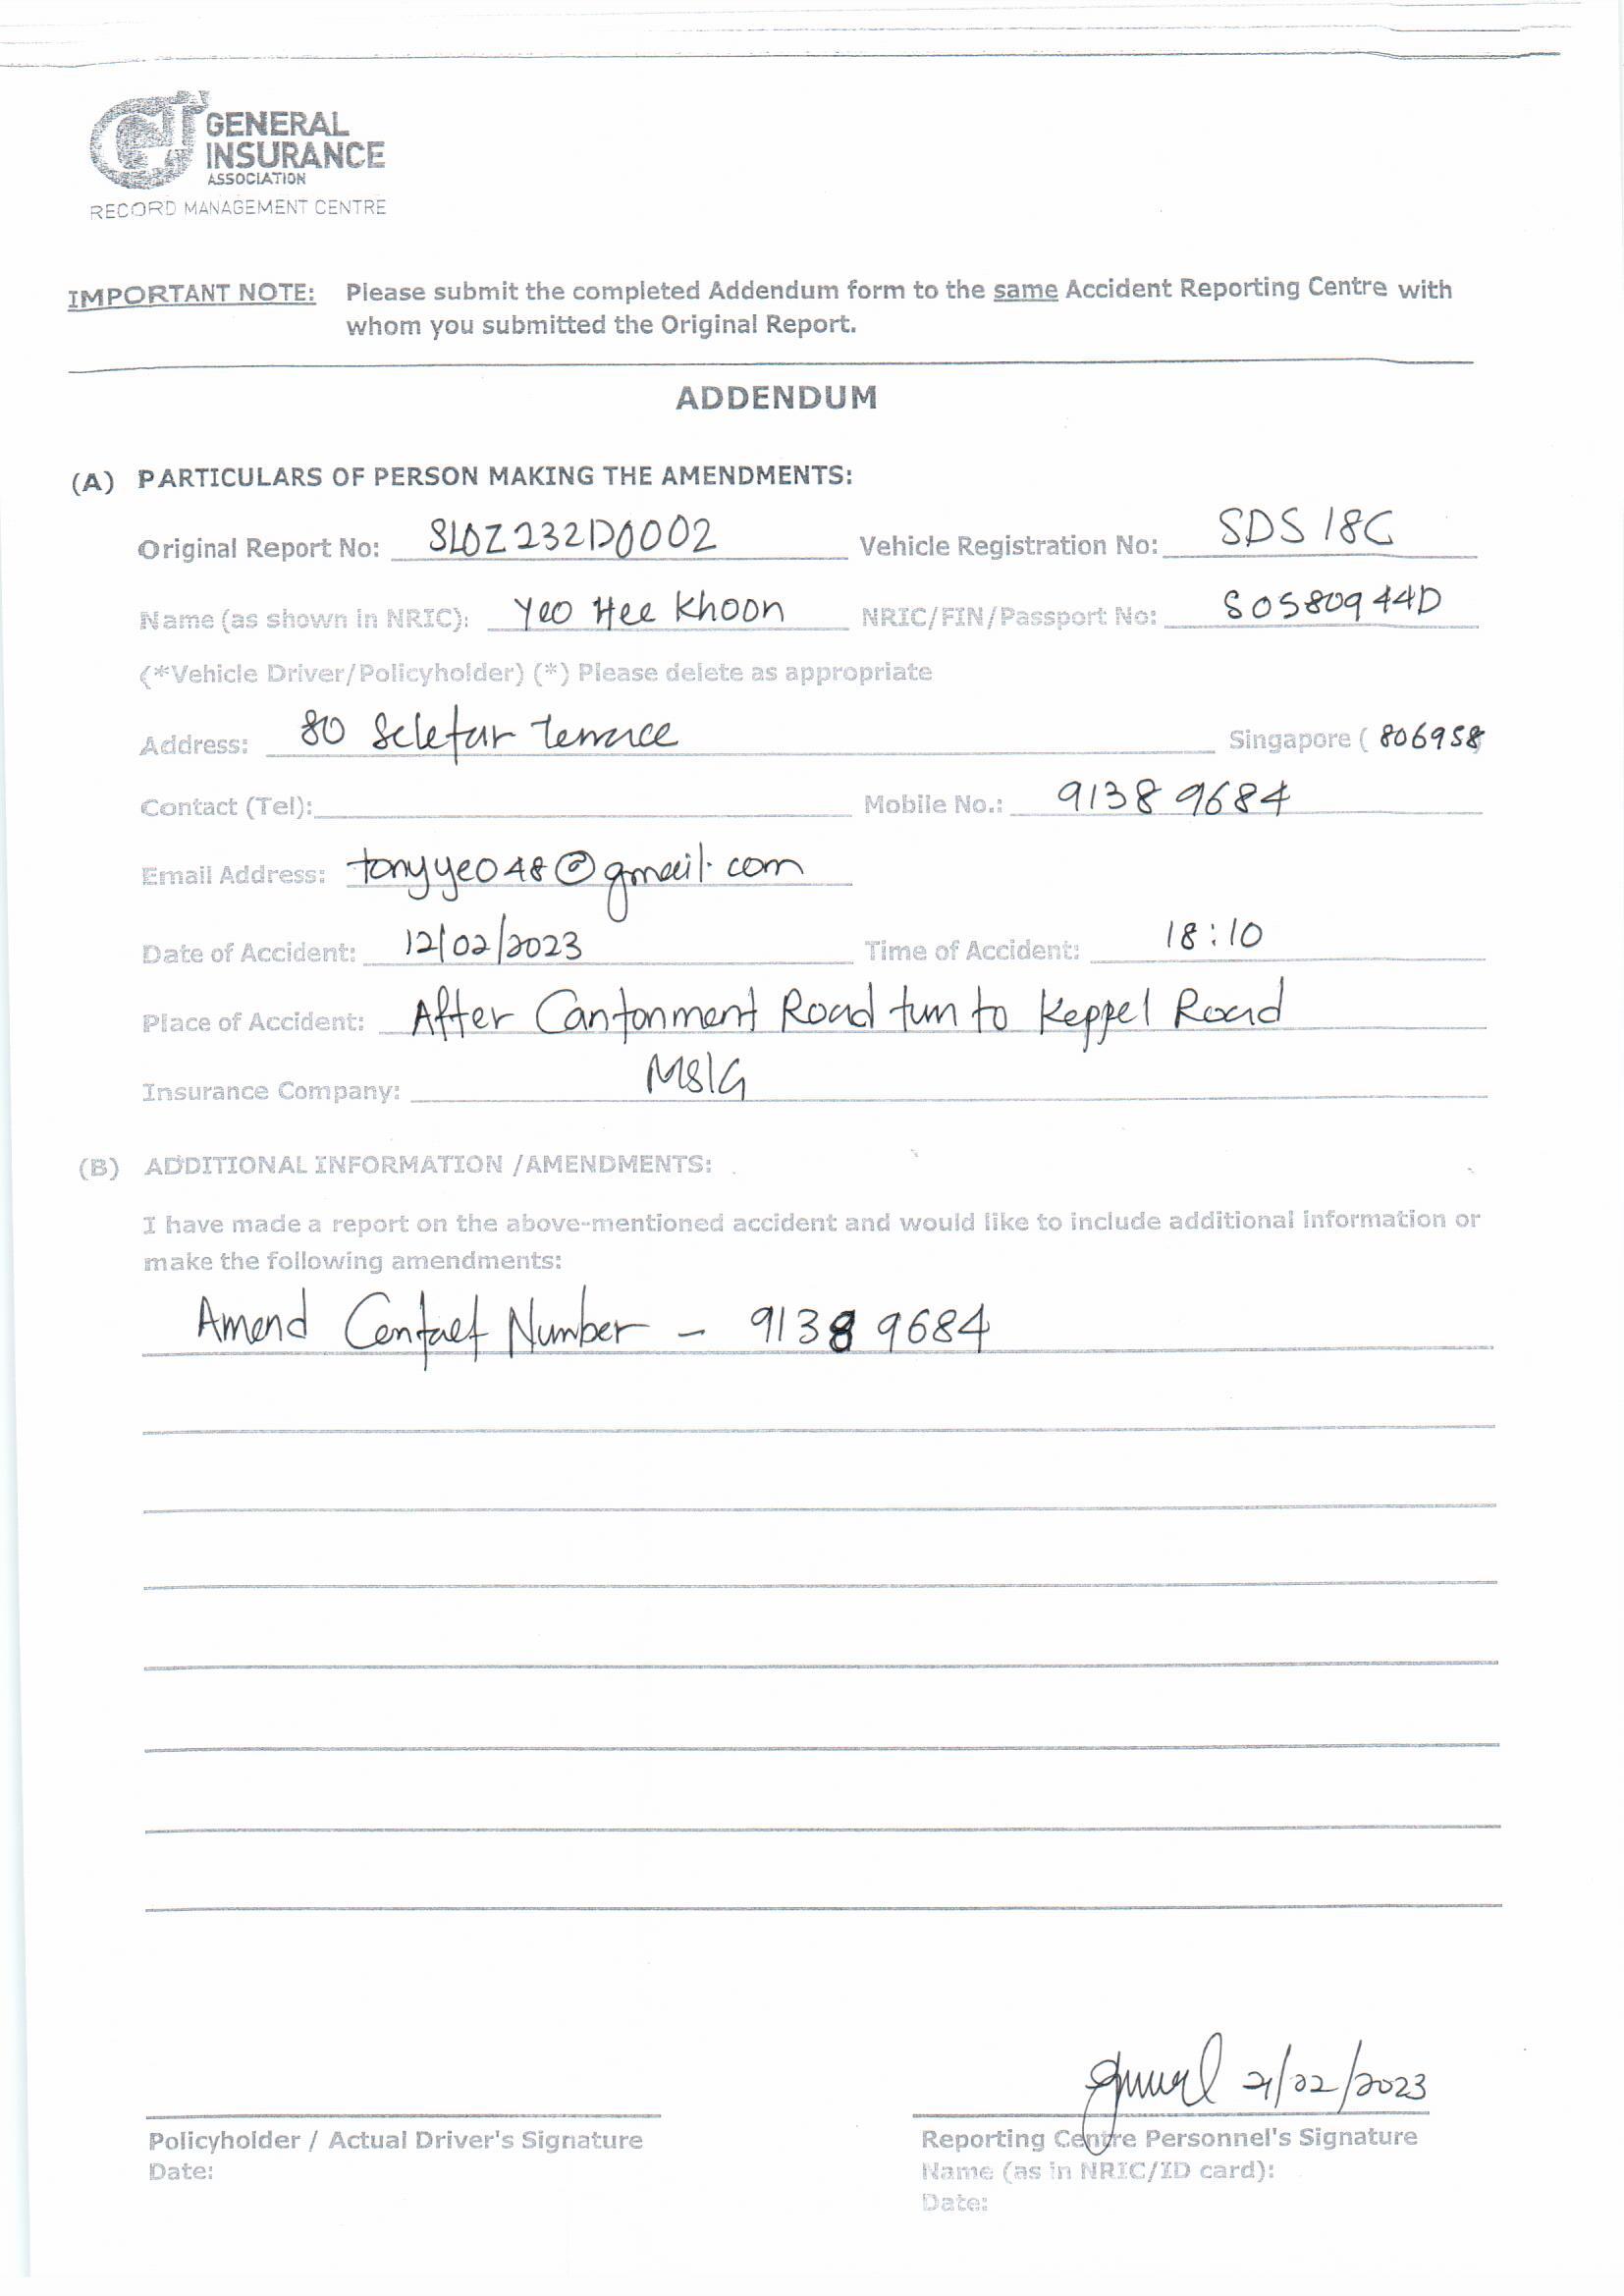 GENERAL
INSURANCE
ASSOCIATION
RECORD MANAGEMENT CENTRE
IMPORTANT NOTE: Please submit the completed Addendum form to the same Accident Reporting Centre with
whom you submitted the Original Report.
ADDENDUM
(A) PARTICULARS OF PERSON MAKING THE AMENDMENTS:
Original Report No: SLOZ232D0002 Vehicle Registration No: SDS 18C
Name (as shown in NRIC): Yeo Hee Khoon NRIC/FIN/Passport No: S0580944D
(*Vehicle Driver/Policyholder) (*) Please delete as appropriate
Address: 80 Seletar Terrace Singapore ( 806958
Contact (Tel): Mobile No.: 9138 9684
Email Address: tonyyeo48@gmail.com
Date of Accident: 12/02/2023 Time of Accident: 18:10
Place of Accident: After Cantonment Road turn to Keppel Road
Insurance Company: MSIG
(B) ADDITIONAL INFORMATION /AMENDMENTS:
I have made a report on the above-mentioned accident and would like to include additional information or
make the following amendments:
Amend Contact Number - 9138 9684
21/02/2023
Policyholder / Actual Driver's Signature Reporting Centre Personnel's Signature
Date: Name (as in NRIC/ID card):
Date: